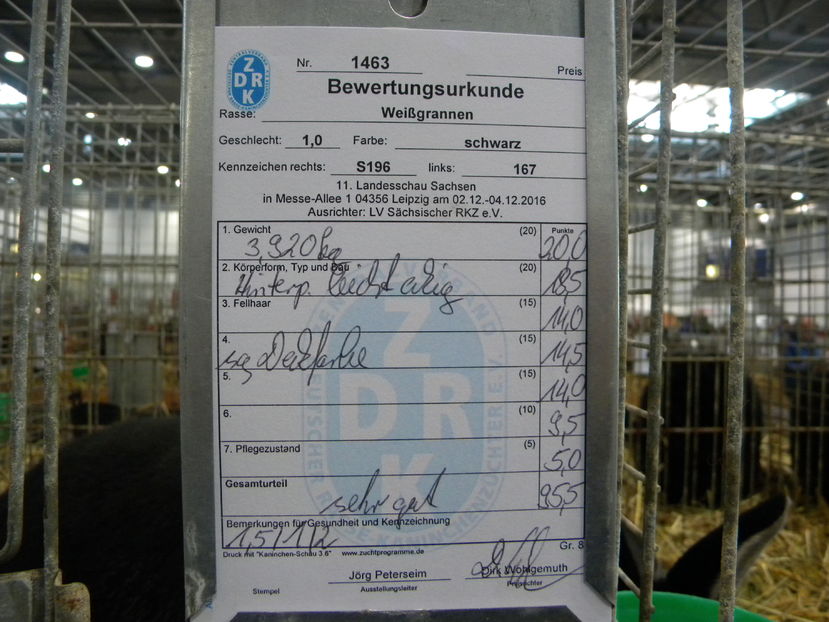 Z
DRK
Nr. 1463 Preis
Bewertungsurkunde
Rasse: Weißgrannen
Geschlecht: 1,0 Farbe: schwarz
Kennzeichen rechts: S196 links: 167
11. Landesschau Sachsen
in Messe-Allee 1 04356 Leipzig am 02.12.-04.12.2016
Ausrichter: LV Sächsischer RKZ e.V.
1. Gewicht (20) Punkte
3,920 kg 20,0
2. Körperform, Typ und Bau (20)
Hinterp. leicht eckig 18,5
3. Fellhaar (15)
14,0
4. (15)
sg Deckfarbe 14,5
5. (15)
14,0
6. (10)
9,5
7. Pflegezustand (5)
5,0
Gesamturteil
sehr gut 95,5
Bemerkungen für Gesundheit und Kennzeichnung
1,5/1/2
Druck mit "Kaninchen-Schau 3.6" www.zuchtprogramme.de Gr. 8
Jörg Peterseim Dirk Wohlgemuth
Stempel Ausstellungsleiter Preisrichter